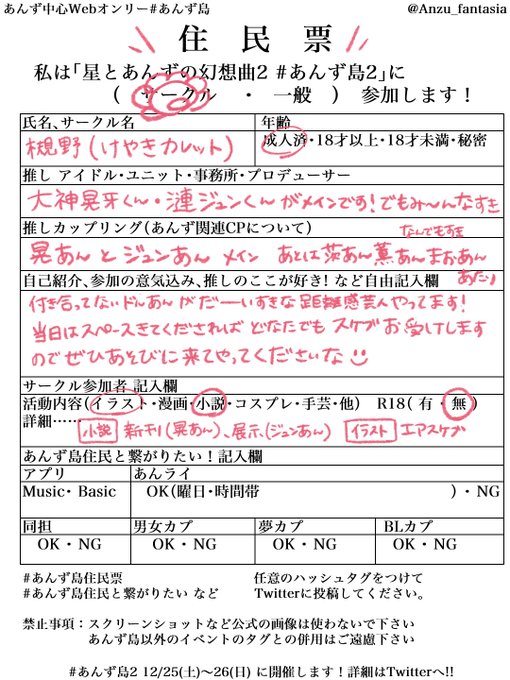 あんず中心Webオンリー#あんず島
@Anzu_fantasia
住民票
私は「星とあんずの幻想曲2 #あんず島2」に
( サークル ・ 一般 ) 参加します！
氏名、サークル名
年齢
槻野(けやきカレット)
成人済・18才以上・18才未満・秘密
推し アイドル・ユニット・事務所・プロデューサー
大神晃牙くん・漣ジュンくんがメインです！でもみ〜んなすき
推しカップリング(あんず関連CPについて)
なんでもすき
晃あんとジュンあん メイン あとは茨あん薫あんまおあん
あたり
自己紹介、参加の意気込み、推しのここが好き! など自由記入欄
付き合ってないドルあんがだーいすきな距離感芸人やってます！
当日はスペースきてくださればどなたでもスケブお受けします
のでぜひあそびに来てやってくださいな
サークル参加者 記入欄
活動内容(イラスト・漫画・小説・コスプレ・手芸・他) R18(有・無)
詳細……
小説 新刊(晃あん)、展示(ジュンあん) イラスト エアスケブ
あんず島住民と繋がりたい！記入欄
アプリ
あんライ
Music・Basic
OK(曜日・時間帯 )・NG
同担
男女カプ
夢カプ
BLカプ
OK・NG
OK・NG
OK・NG
OK・NG
#あんず島住民票
任意のハッシュタグをつけて
#あんず島住民と繋がりたい など
Twitterに投稿してください。
禁止事項：スクリーンショットなど公式の画像は使わないで下さい
あんず島以外のイベントのタグとの併用はご遠慮下さい
#あんず島2 12/25(土)〜26(日) に開催します！詳細はTwitterへ!!